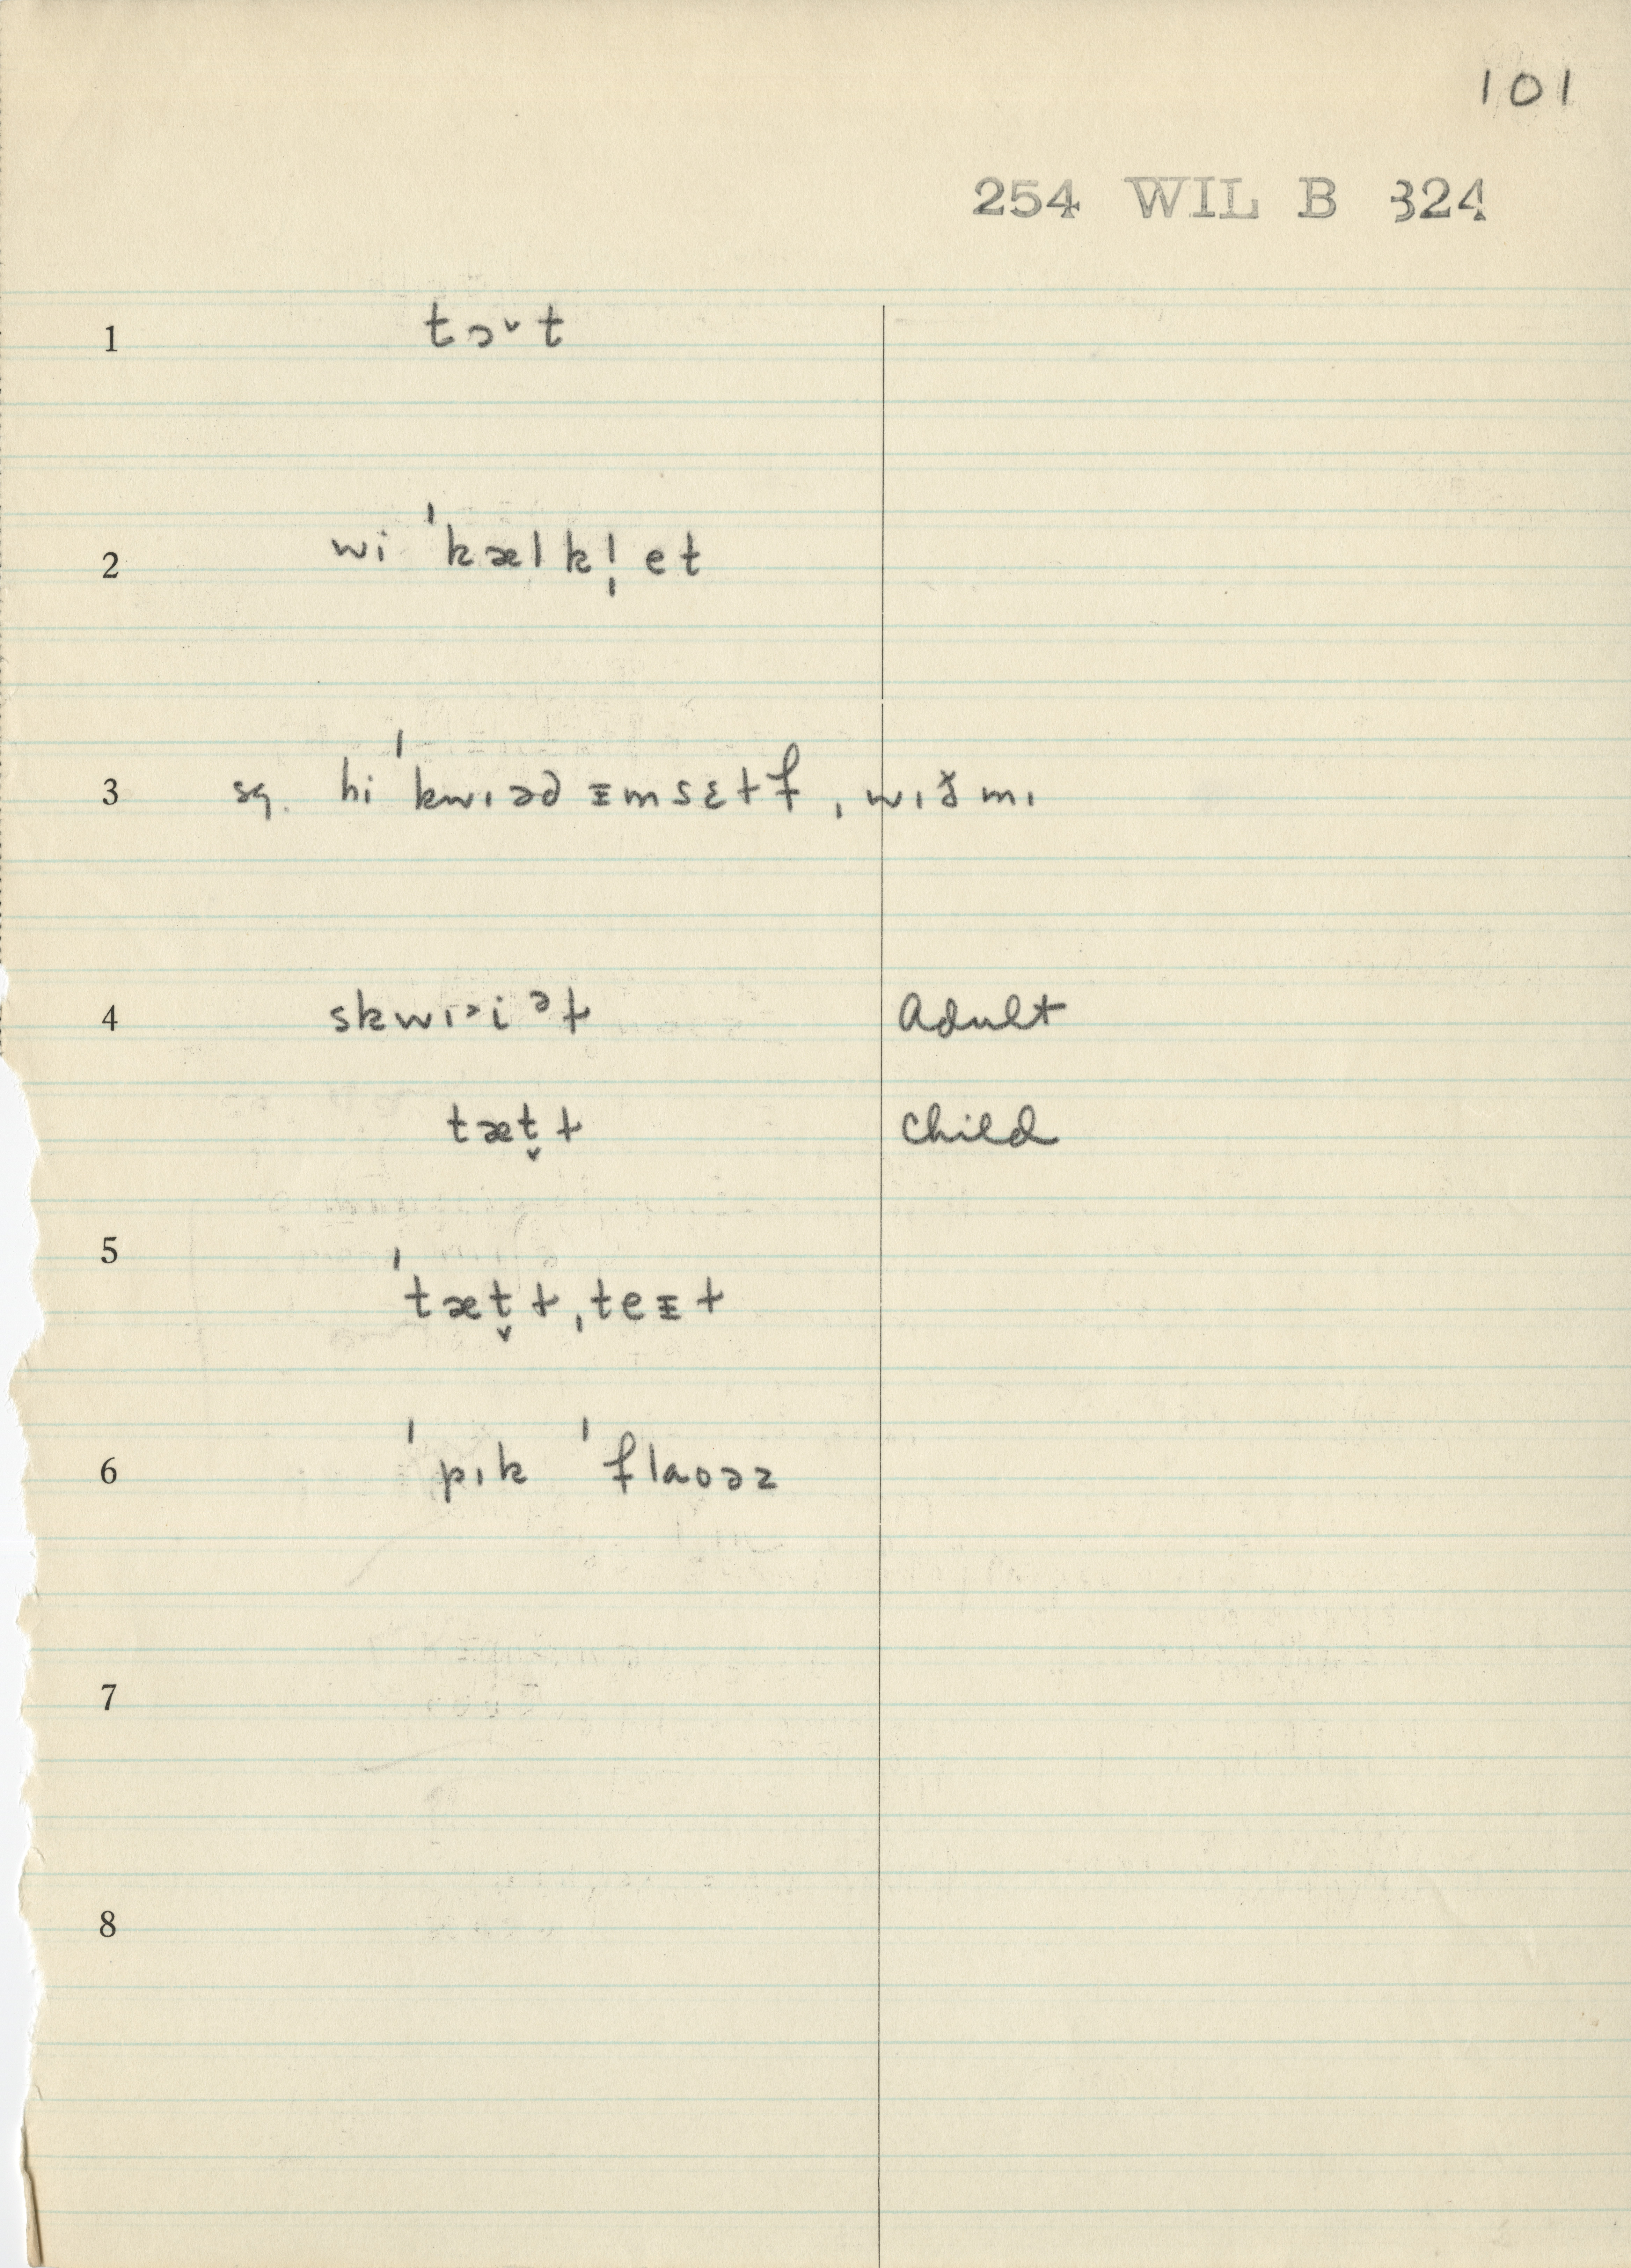 101
254 WIL B 324
1 tɔˇt
2 wi ˈkælkǃ̩et
3 sq. hi ˈkwɪəd ɪmsɛtf ˌwɪð̆mɪ
4 skwɪɔi ᵊt Adult
tæt̬t Child
5 ˈtæt̬t ˌteɪt
6 ˈpɪk ˈflaoəz
7
8